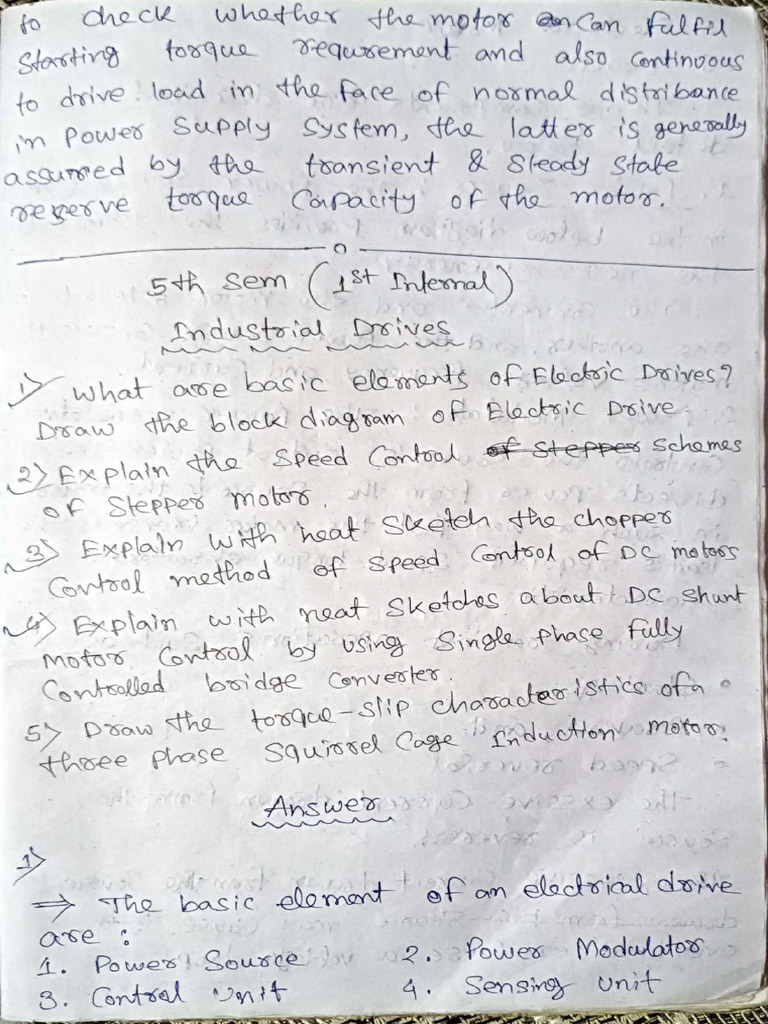 to check whether the motor can can fulfil
starting torque requirement and also continuous
to drive load in the face of normal distribance
in power supply system, the latter is generally
assured by the transient & steady state
reserve torque capacity of the motor.
5th sem (1st Internal)
Industrial Drives
1) What are basic elements of Electric Drives?
Draw the block diagram of Electric Drive.
2) Explain the speed control of Stepper schemes
of stepper motor.
3) Explain with neat sketch the chopper
control method of speed control of DC motors
4) Explain with neat sketches about DC shunt
motor control by using single phase fully
controlled bridge converter.
5) Draw the torque-slip characteristics of a
three phase squirrel cage induction motor.
Answer
1)
⇒ The basic element of an electrical drive
are :
1. Power Source 2. Power Modulator
3. Control Unit 4. Sensing unit